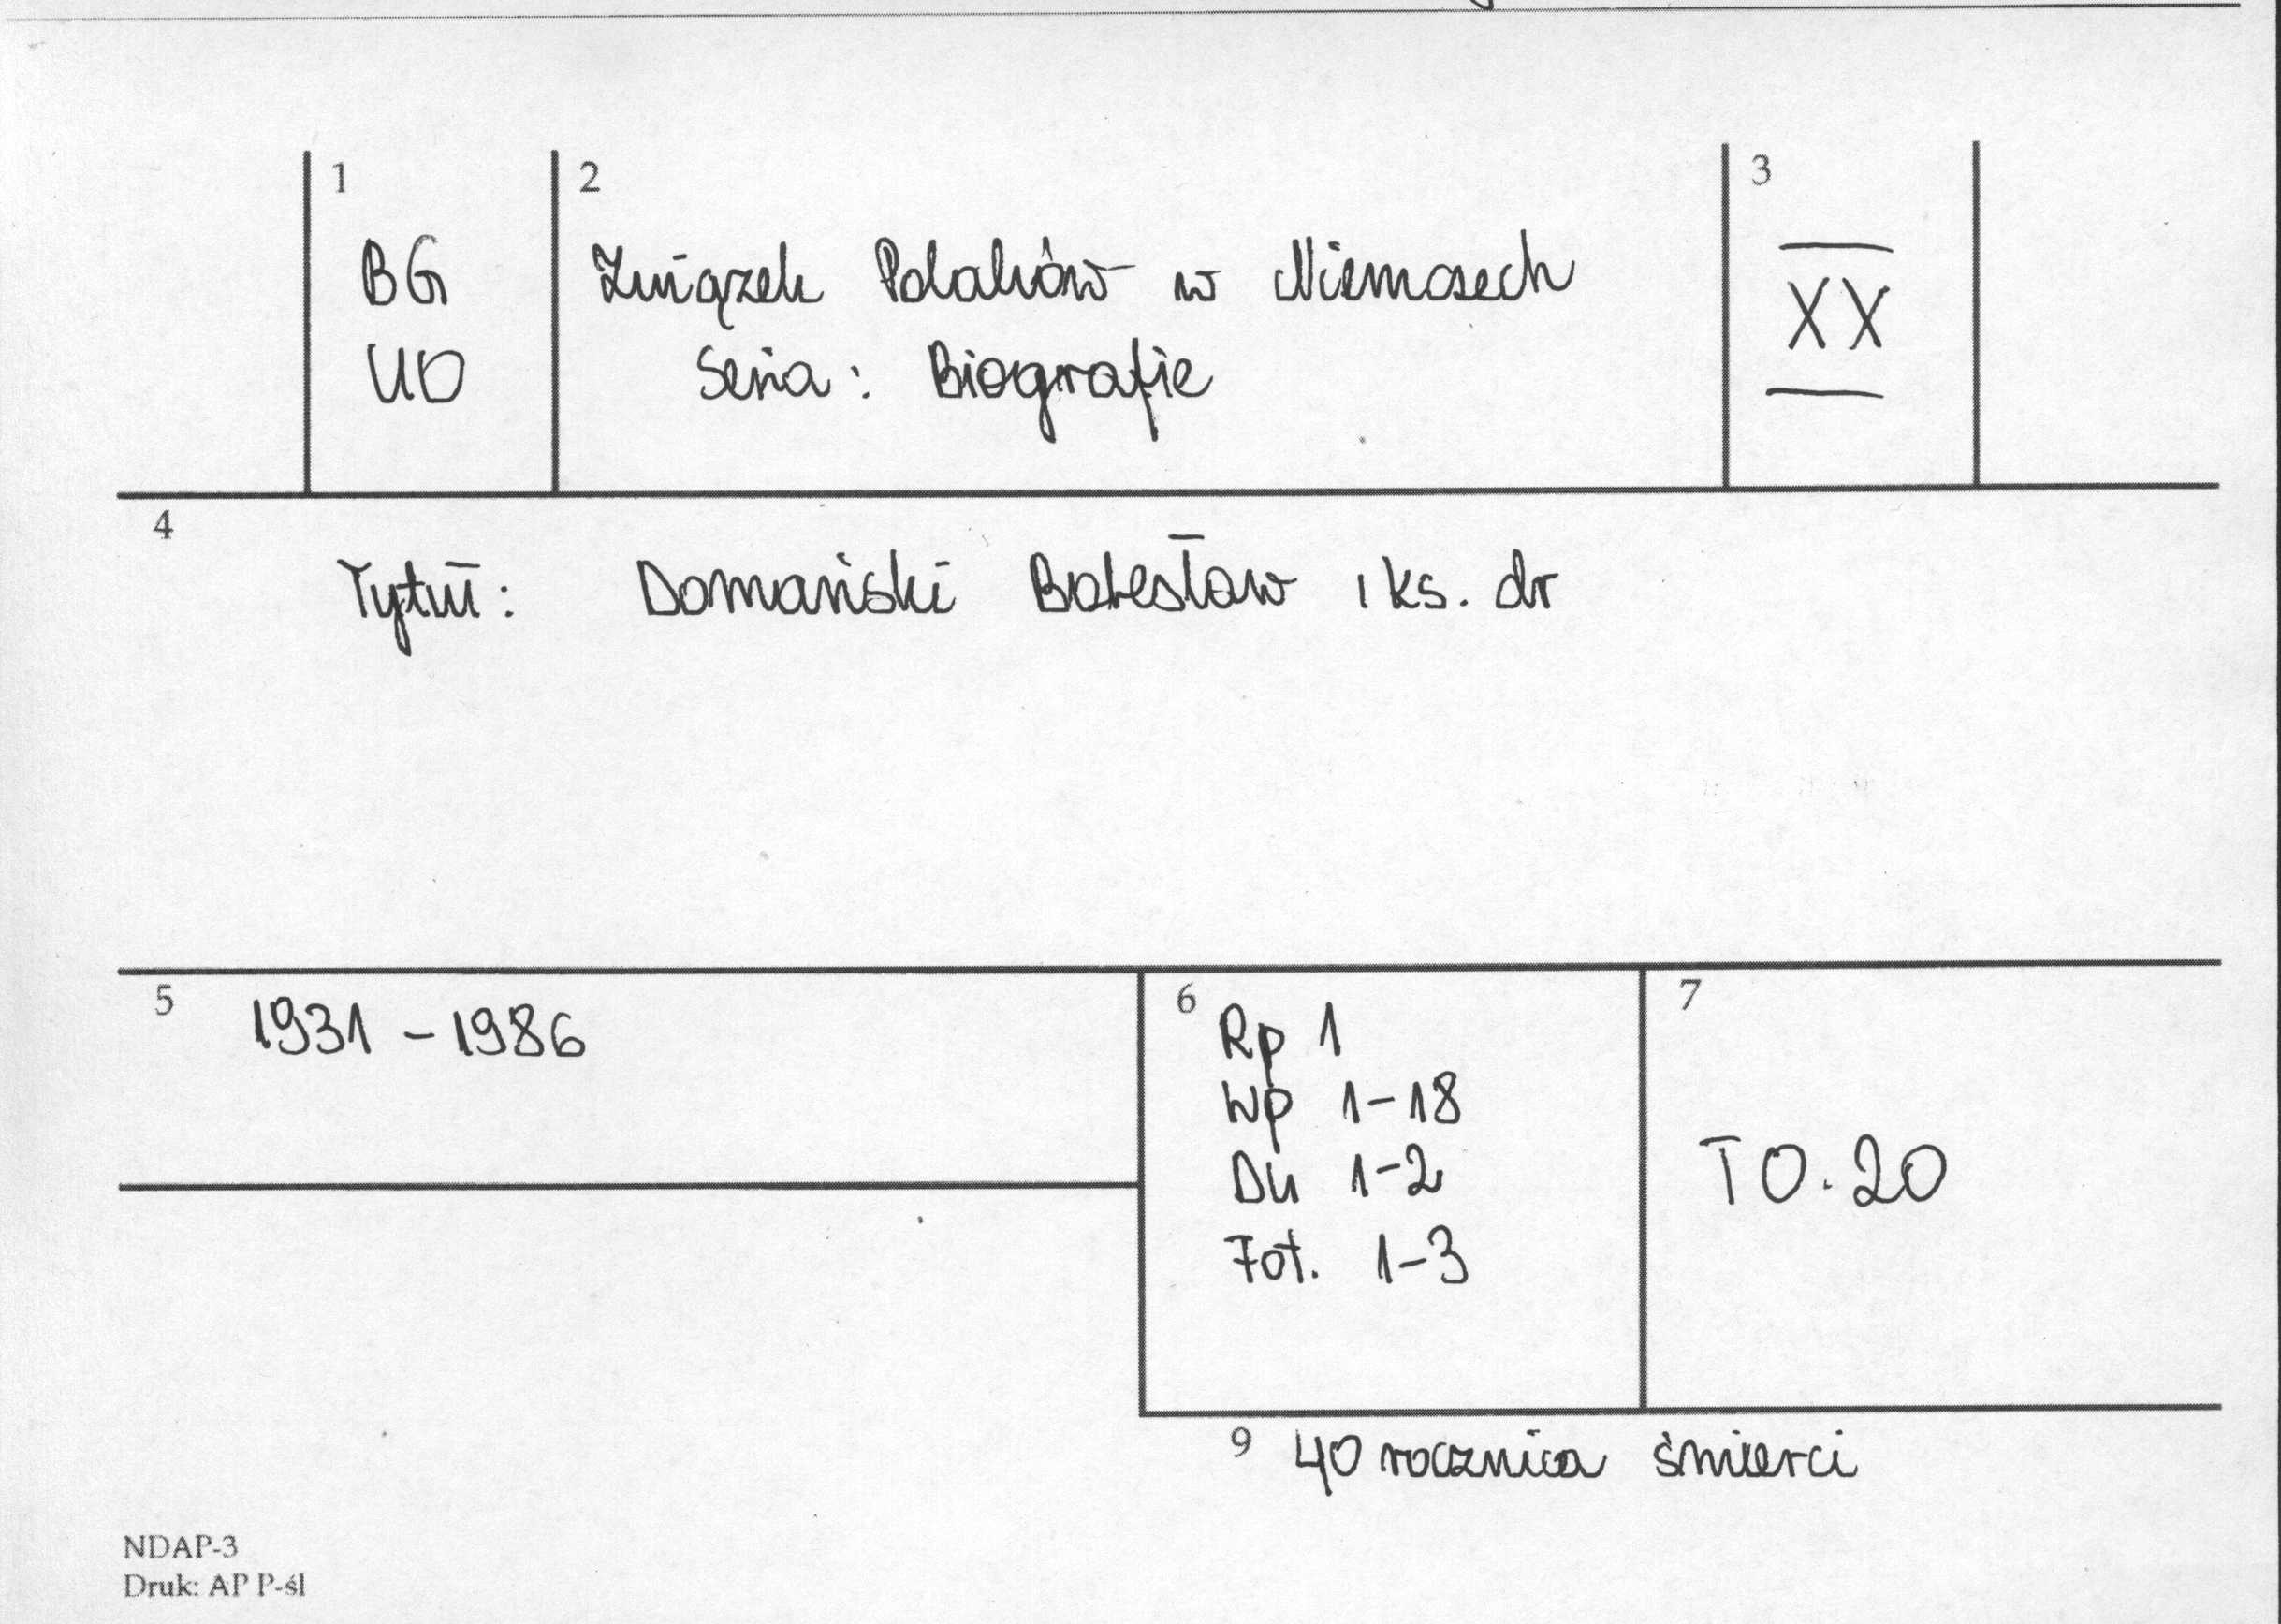 1
BG
UO
2
Związek Polaków w Niemczech
Seria: Biografie
3
XX
4
Tytuł: Domański Bolesław, ks. dr
5
1931-1986
6
Rp 1
Wp 1-18
Dk 1-2
Fot. 1-3
7
TO.20
9 40 rocznica śmierci
NDAP-3
Druk: AP P-śl